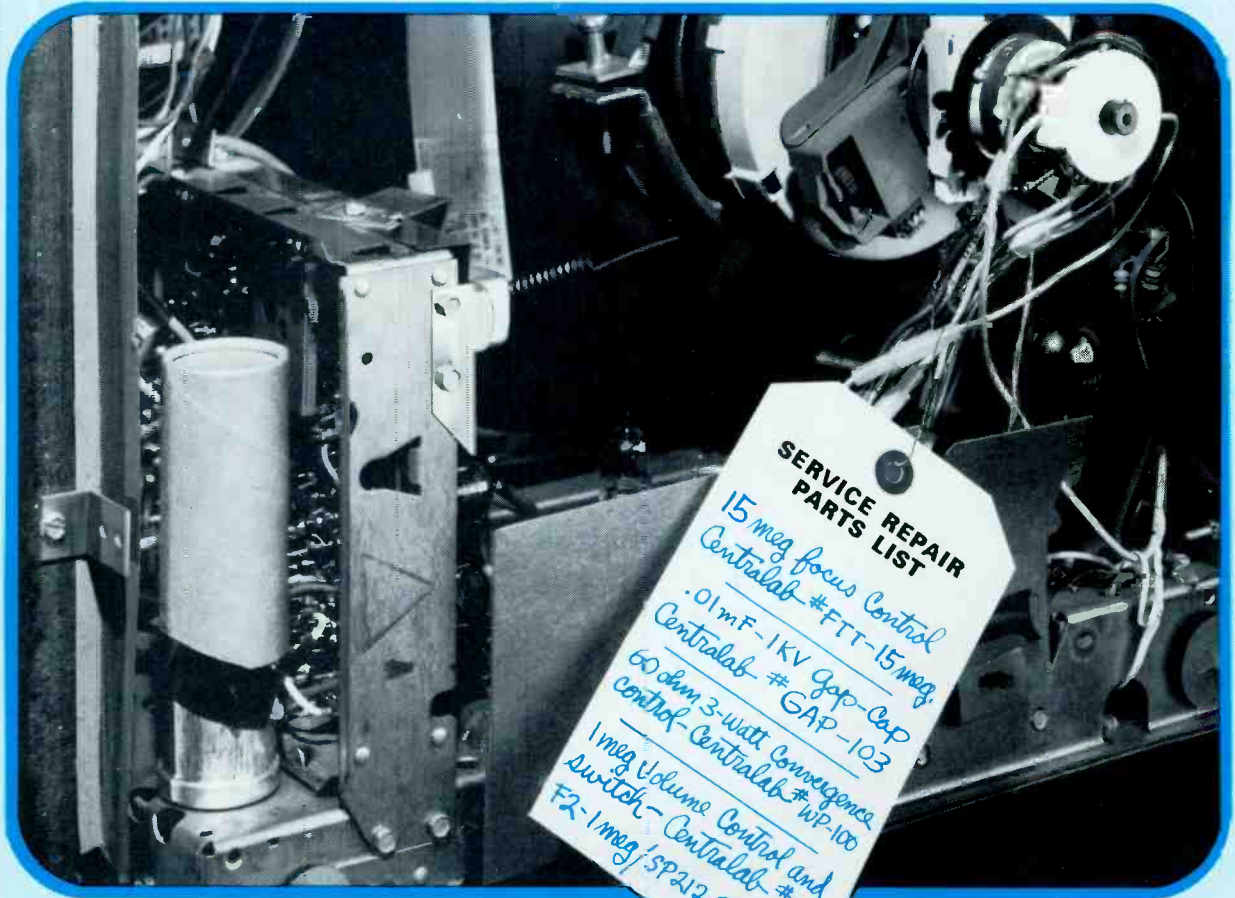 SERVICE REPAIR
PARTS LIST
15 meg focus Control
Centralab #FTT-15meg.
.01mF-1KV Gap-Cap
Centralab # GAP-103
60 ohm 3-watt Convergence
control-Centralab # WP-100
1 meg Volume Control and
switch-Centralab #
F2-1meg/SP212